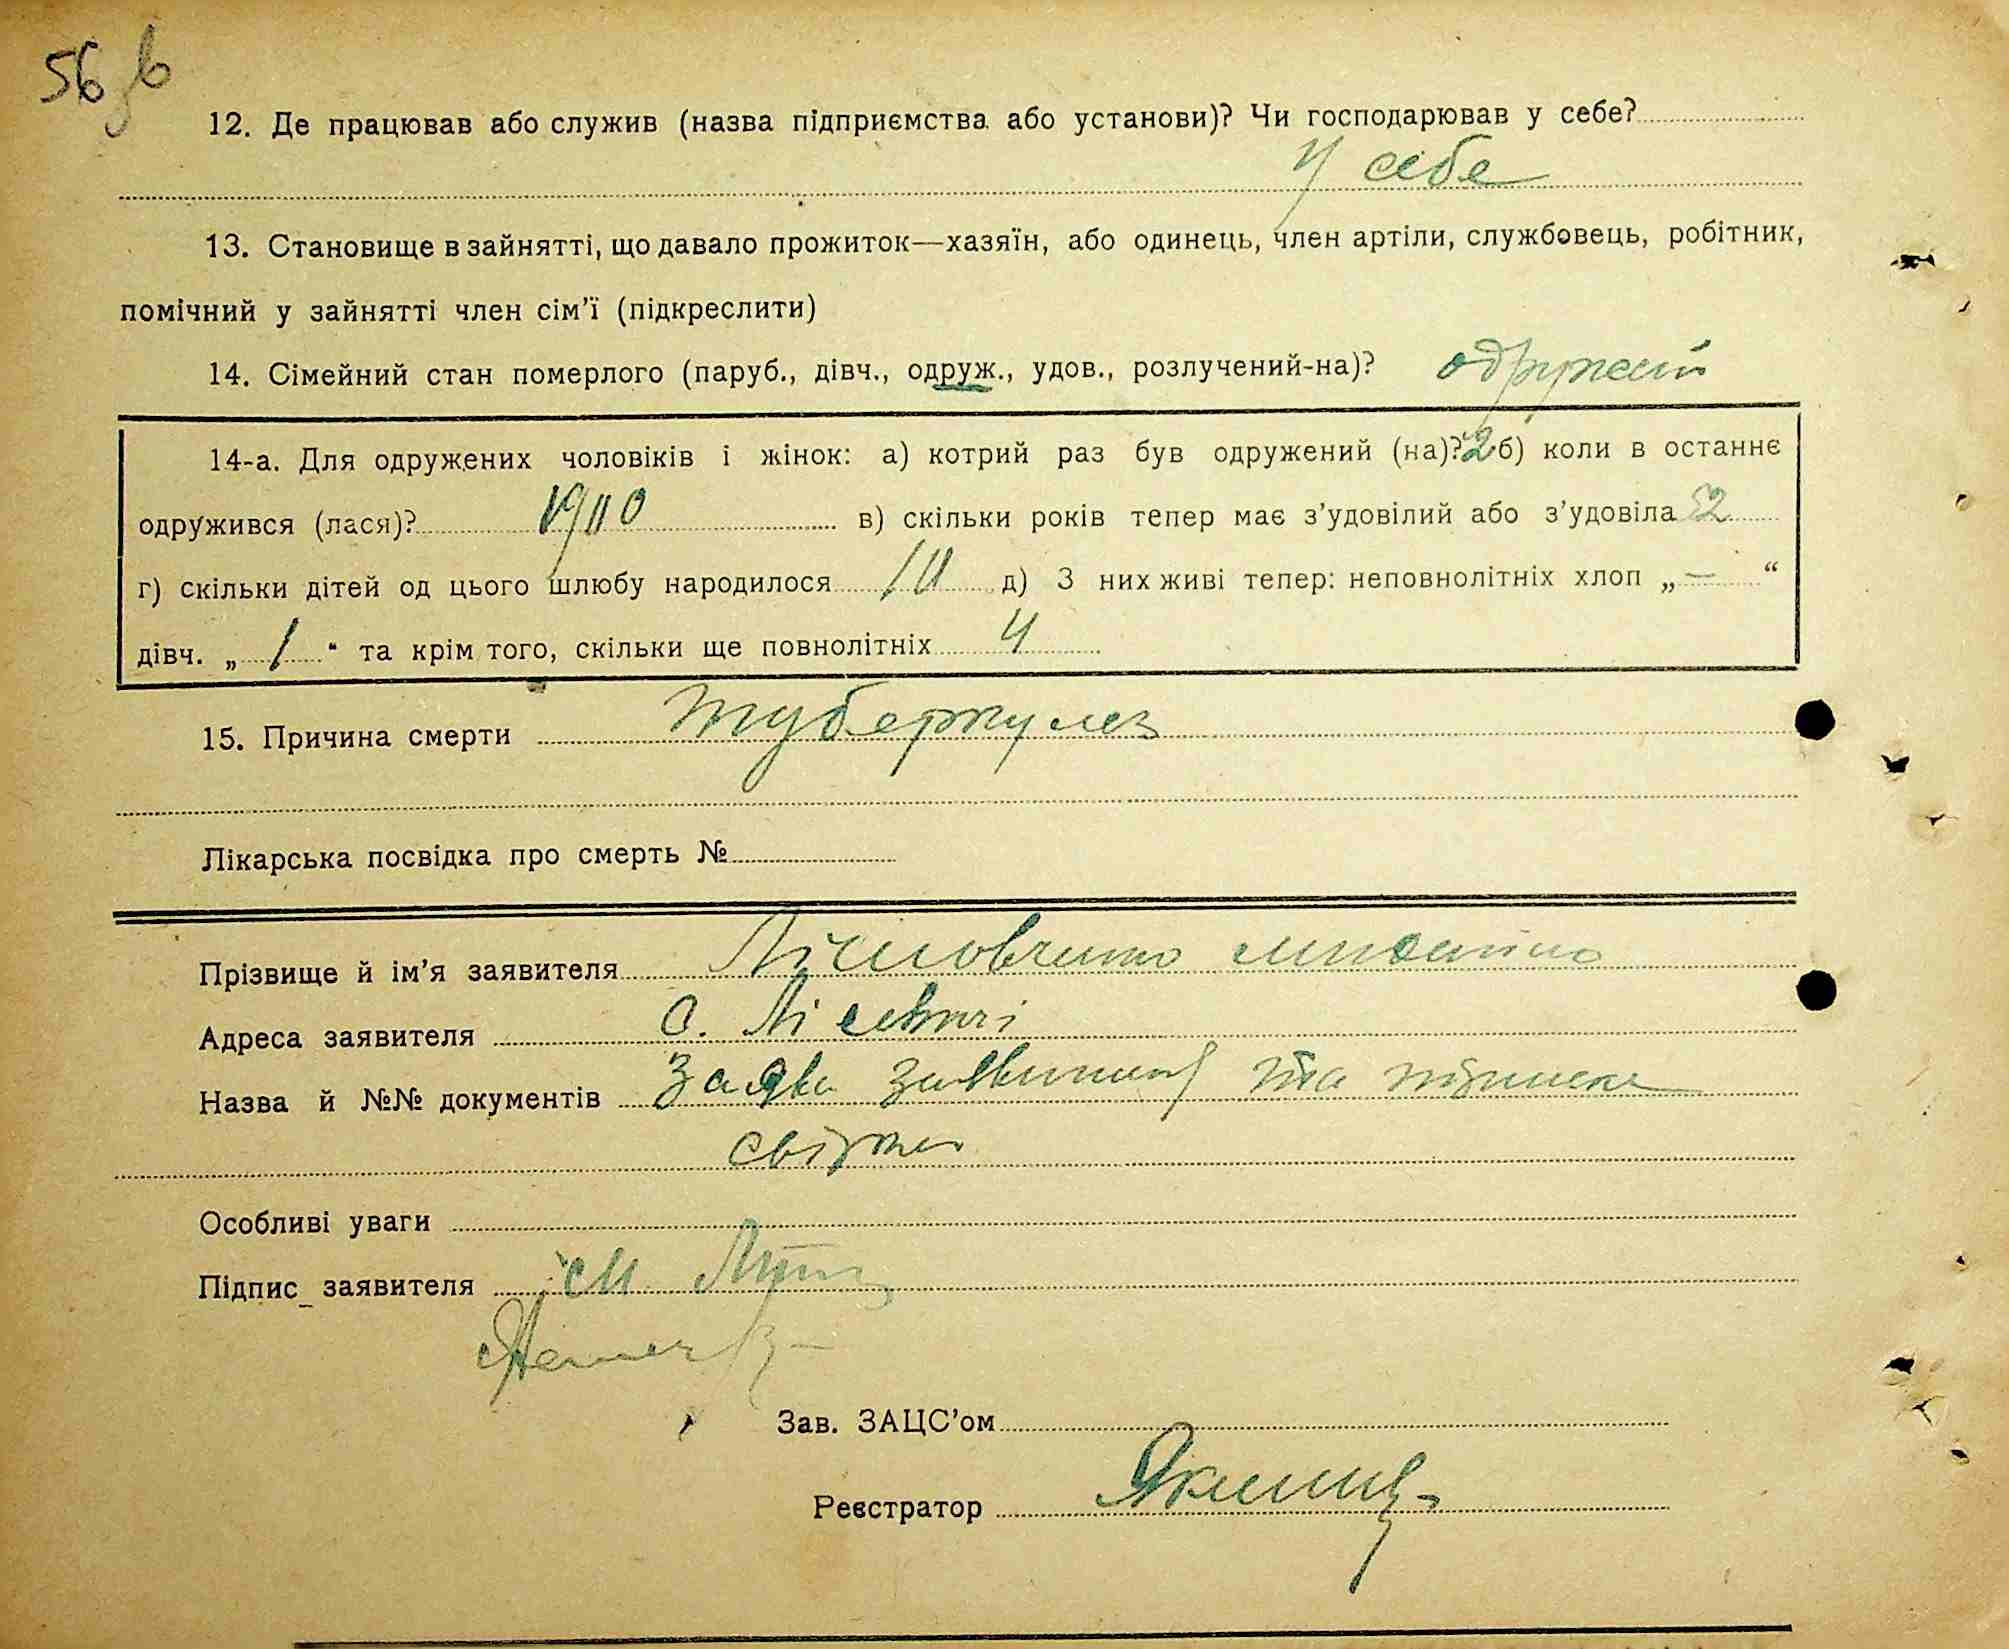 56
12. Де працював або служив (назва підприємства або установи)? Чи господарював у себе?
У себе
13. Становище в зайнятті, що давало прожиток—хазяїн, або одинець, член артіли, службовець, робітник,
помічний у зайнятті член сім’ї (підкреслити)
14. Сімейний стан померлого (паруб., дівч., одруж., удов., розлучений-на)? одружений
14-а. Для одружених чоловіків і жінок: а) котрий раз був одружений (на)? 2 б) коли в останнє
одружився (лася)? 1910 в) скільки років тепер має з’удовілий або з’удовіла 52
г) скільки дітей од цього шлюбу народилося 10 д) З них живі тепер: неповнолітніх хлоп „ — “
дівч. „ 1 “ та крім того, скільки ще повнолітніх 4
15. Причина смерти туберкулез
Лікарська посвідка про смерть №
Прізвище й ім’я заявителя
Адреса заявителя с.
Назва й №№ документів Заява та підписка
свідків
Особливі уваги
Підпис заявителя М.
Зав. ЗАЦС’ом
Реєстратор